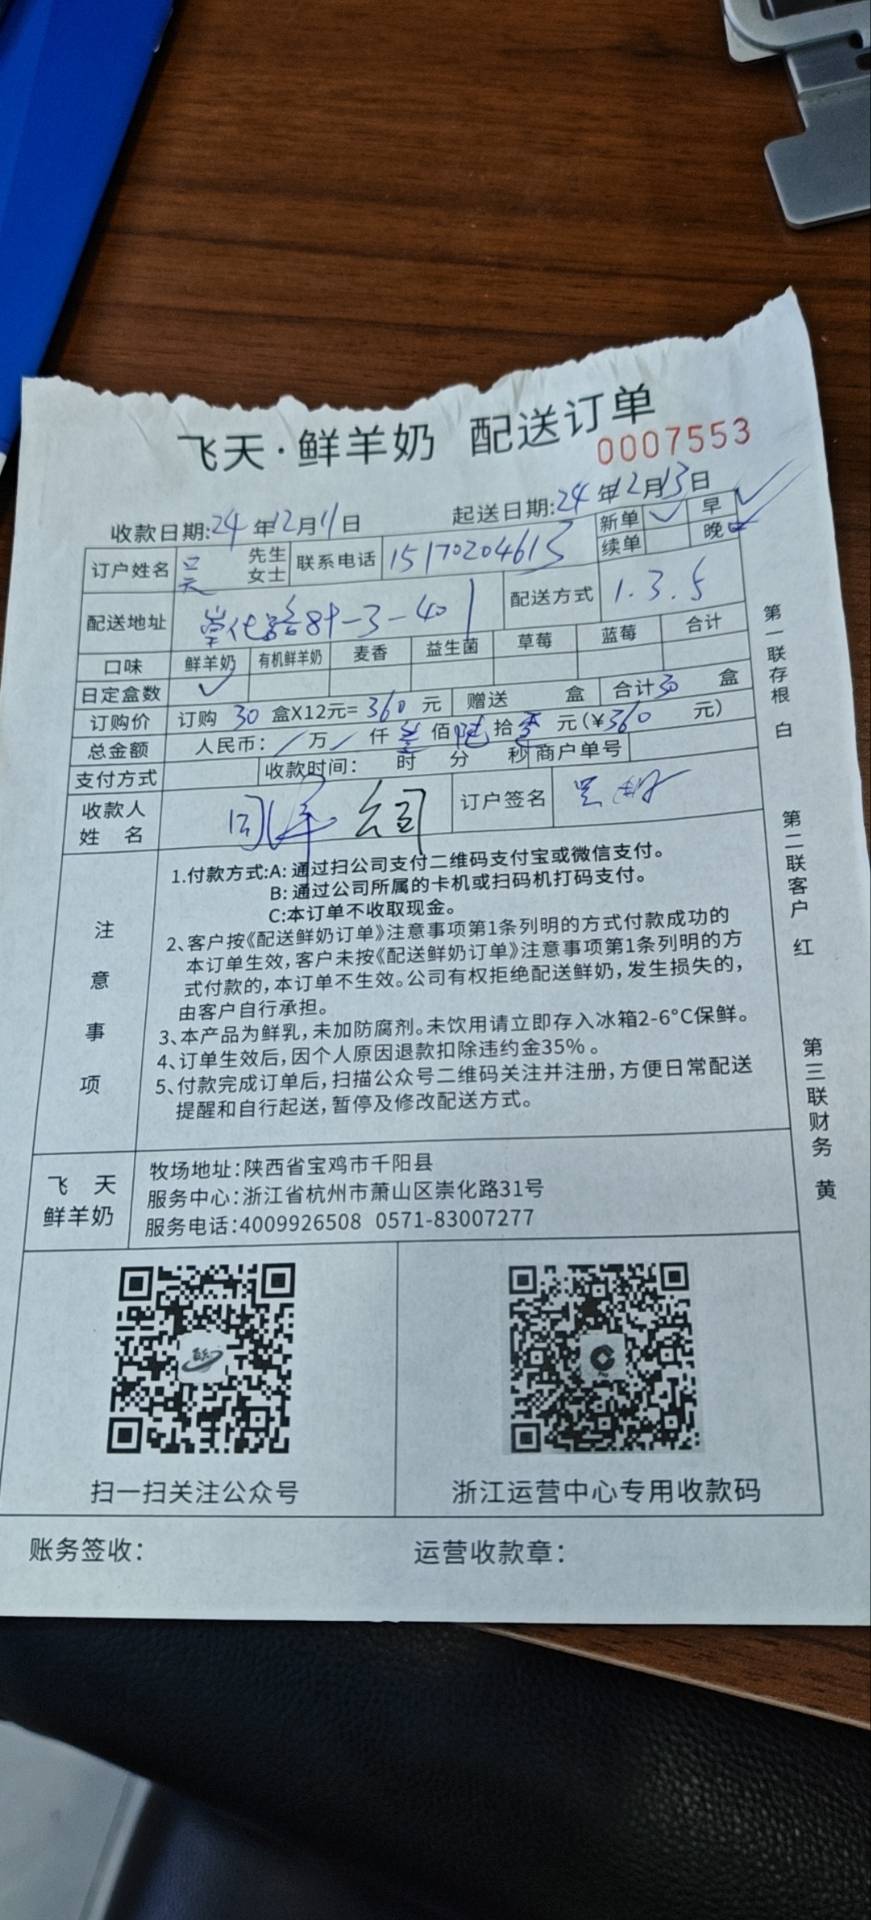 飞天·鲜羊奶 配送订单
0007553
收款日期:24年12月11日 起送日期:24年12月13日
订户姓名 吴 先生 女士 联系电话 15170204613 新单 ✓ 早 ✓
续单 晚
配送地址 崇化路89-3-401 配送方式 1.3.5
口味 鲜羊奶 有机鲜羊奶 麦香 益生菌 草莓 蓝莓 合计
日定盒数 ✓
订购价 订购 30 盒X12元= 360 元 赠送 盒 合计 30 盒
总金额 人民币: / 万 / 仟 叁 佰 陆 拾 零 元(¥360 元)
支付方式 收款时间: 时 分 秒 商户单号
收款人姓名 订户签名 吴
注意事项
1.付款方式:A: 通过扫公司支付二维码支付宝或微信支付。
B: 通过公司所属的卡机或扫码机打码支付。
C:本订单不收取现金。
2、客户按《配送鲜奶订单》注意事项第1条列明的方式付款成功的
本订单生效,客户未按《配送鲜奶订单》注意事项第1条列明的方
式付款的,本订单不生效。公司有权拒绝配送鲜奶,发生损失的,
由客户自行承担。
3、本产品为鲜乳,未加防腐剂。未饮用请立即存入冰箱2-6°C保鲜。
4、订单生效后,因个人原因退款扣除违约金35%。
5、付款完成订单后,扫描公众号二维码关注并注册,方便日常配送
提醒和自行起送,暂停及修改配送方式。
飞天鲜羊奶
牧场地址:陕西省宝鸡市千阳县
服务中心:浙江省杭州市萧山区崇化路31号
服务电话:4009926508 0571-83007277
扫一扫关注公众号 浙江运营中心专用收款码
账务签收: 运营收款章:
第一联存根 白
第二联客户 红
第三联财务 黄